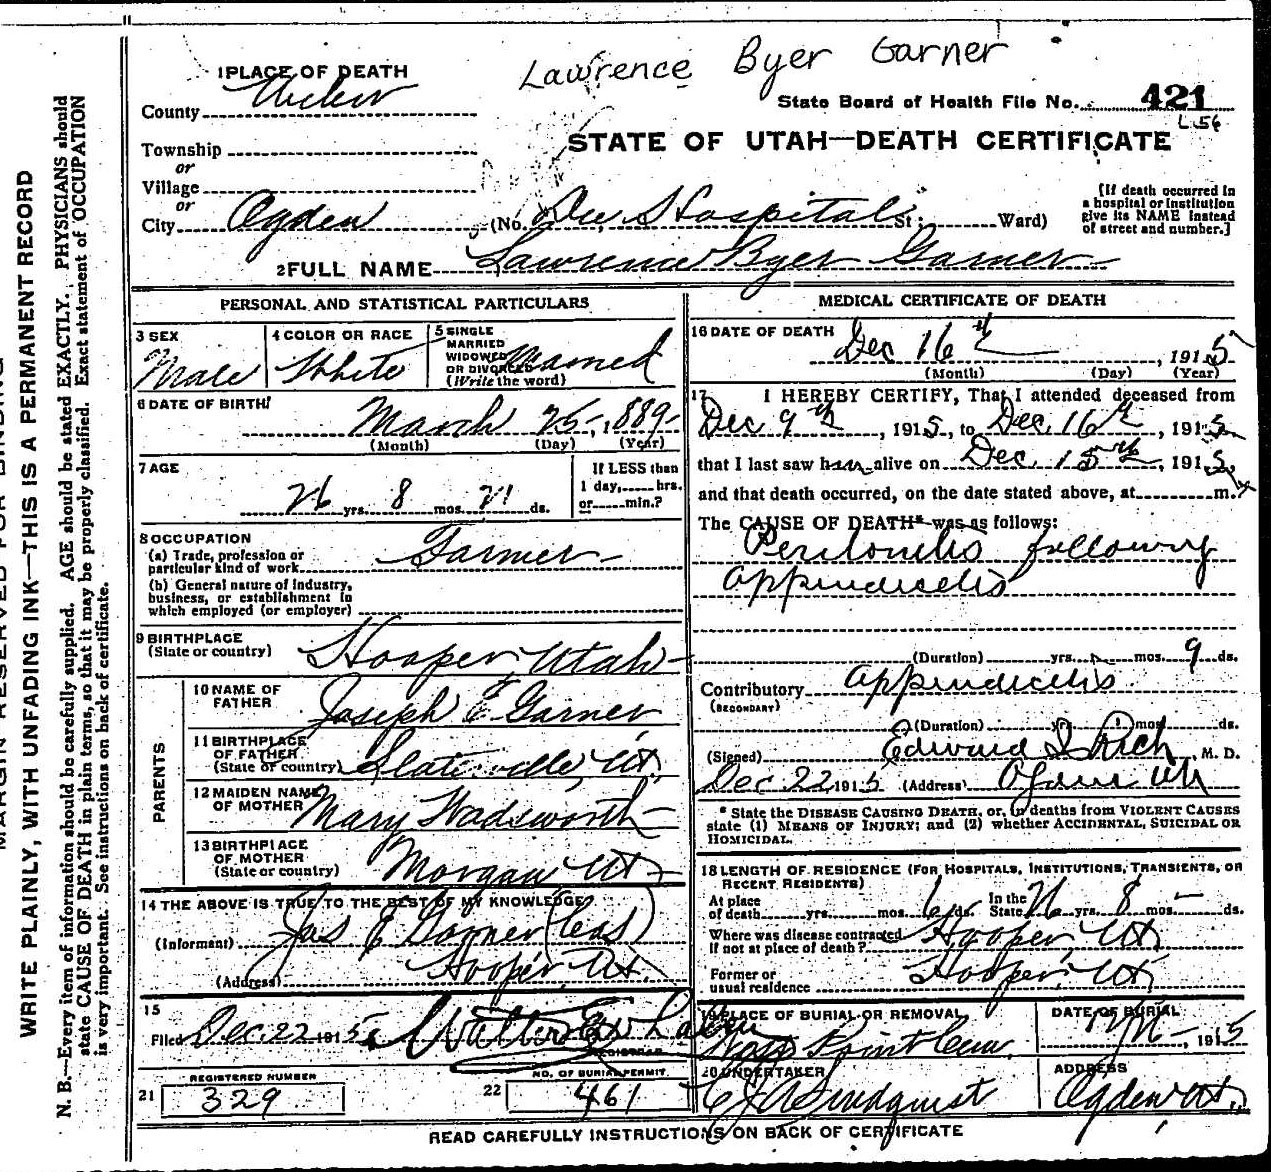 Lawrence Byer Garner
1 PLACE OF DEATH
County Weber
State Board of Health File No. 421
L 56
STATE OF UTAH—DEATH CERTIFICATE
Township
or
Village
or
City Ogden (No. Dee Hospital St; Ward)
[If death occurred in
a hospital or institution
give its NAME instead
of street and number.]
2 FULL NAME Lawrence Byer Garner
PERSONAL AND STATISTICAL PARTICULARS
3 SEX Male
4 COLOR OR RACE White
5 SINGLE
MARRIED
WIDOWED
OR DIVORCED
(Write the word) Married
6 DATE OF BIRTH
March 25, 1889
(Month) (Day) (Year)
7 AGE
26 yrs. 8 mos. 21 ds.
If LESS than
1 day, hrs.
or min.?
8 OCCUPATION
(a) Trade, profession or
particular kind of work Farmer
(b) General nature of industry,
business, or establishment in
which employed (or employer)
9 BIRTHPLACE
(State or country) Hooper Utah
PARENTS
10 NAME OF
FATHER Joseph E Garner
11 BIRTHPLACE
OF FATHER
(State or country) Slaterville, Ut.
12 MAIDEN NAME
OF MOTHER Mary Wadsworth
13 BIRTHPLACE
OF MOTHER
(State or country) Morgan Ut
14 THE ABOVE IS TRUE TO THE BEST OF MY KNOWLEDGE
(Informant) Jas E Garner
(Address) Hooper, Ut.
15
Filed Dec. 22 1915
REGISTRAR
REGISTERED NUMBER
21 329
NO. OF BURIAL PERMIT
22 461
MEDICAL CERTIFICATE OF DEATH
16 DATE OF DEATH
Dec 16th, 1915
(Month) (Day) (Year)
17 I HEREBY CERTIFY, That I attended deceased from
Dec 9th, 1915, to Dec. 16th, 1915
that I last saw him alive on Dec. 15th, 1915,
and that death occurred, on the date stated above, at m.
The CAUSE OF DEATH* was as follows:
Peritonitis following
appendicitis
(Duration) yrs. mos. 9 ds.
Contributory appendicitis
(SECONDARY)
(Duration) yrs. mos. ds.
(Signed) Edward I Rich, M. D.
Dec 22 1915 (Address) Ogden Ut
* State the DISEASE CAUSING DEATH, or, in deaths from VIOLENT CAUSES
state (1) MEANS OF INJURY; and (2) whether ACCIDENTAL, SUICIDAL OR
HOMICIDAL.
18 LENGTH OF RESIDENCE (FOR HOSPITALS, INSTITUTIONS, TRANSIENTS, OR
RECENT RESIDENTS)
At place
of death yrs. mos. 6 ds. In the
State 26 yrs. 8 mos. — ds.
Where was disease contracted
if not at place of death? Hooper, Ut
Former or
usual residence Hooper, Ut
19 PLACE OF BURIAL OR REMOVAL
DATE OF BURIAL
, 1915
20 UNDERTAKER
Lindquist
ADDRESS
Ogden Ut.
READ CAREFULLY INSTRUCTIONS ON BACK OF CERTIFICATE
MARGIN RESERVED FOR BINDING
WRITE PLAINLY, WITH UNFADING INK—THIS IS A PERMANENT RECORD
N. B.—Every item of information should be carefully supplied. AGE should be stated EXACTLY. PHYSICIANS should
state CAUSE OF DEATH in plain terms, so that it may be properly classified. Exact statement of OCCUPATION
is very important. See instructions on back of certificate.